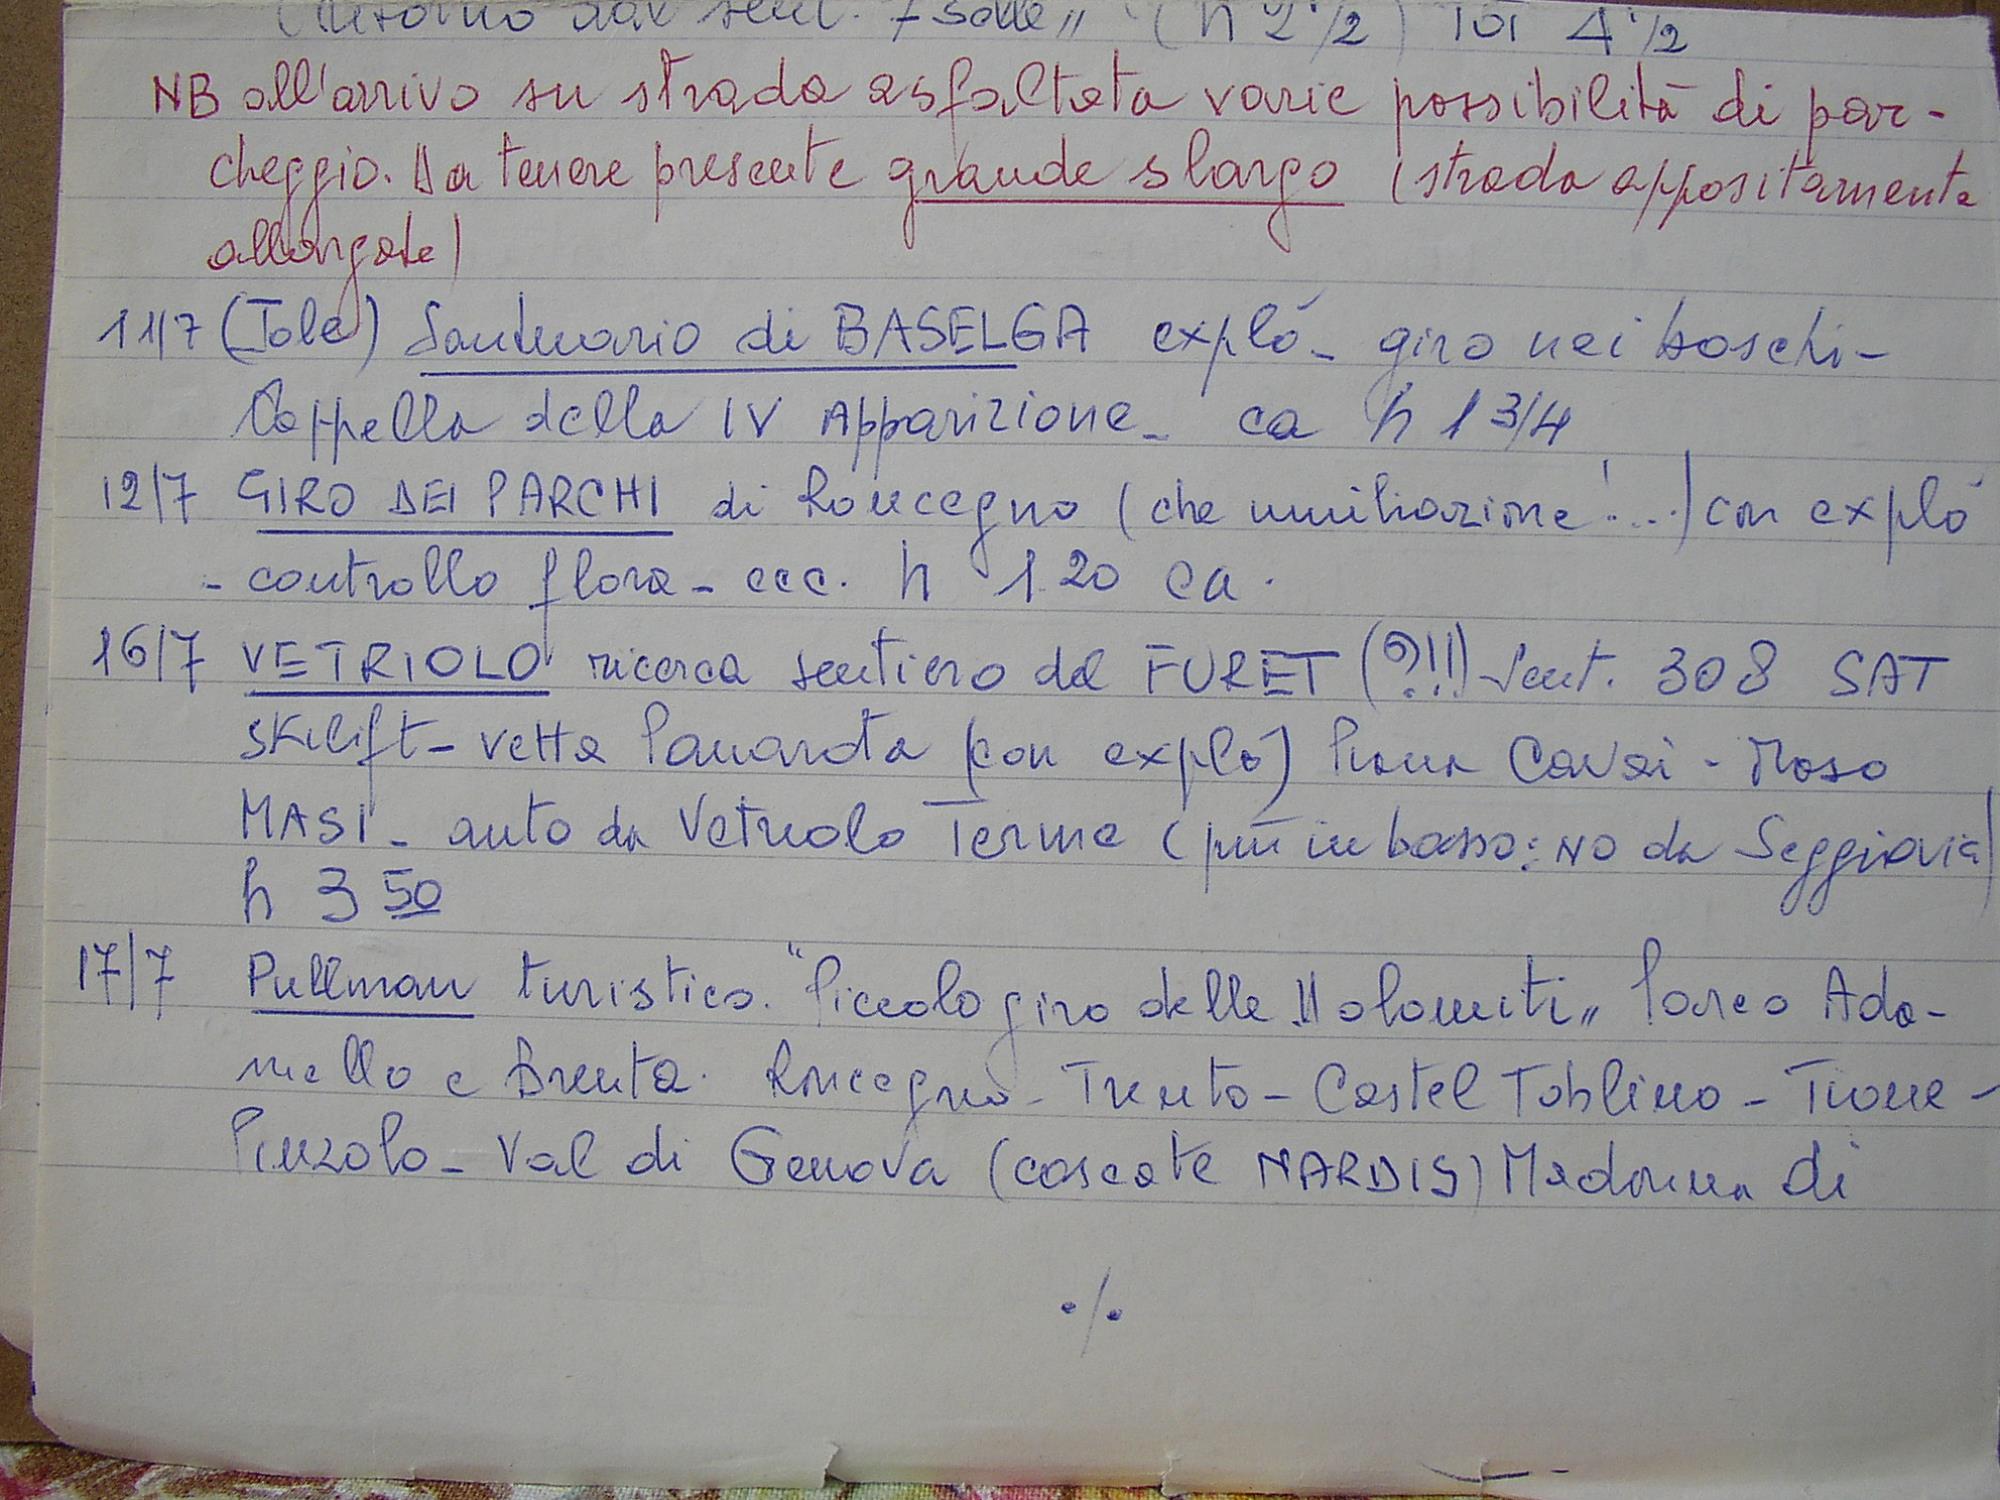 (ritorno dal sent. 7 Selle" (h 2 1/2) TOT 4 1/2
NB all'arrivo su strada asfaltata varie possibilità di par-
cheggio. Da tenere presente grande slargo (strada appositamente
allargata)
11/7 (Tole) Santuario di BASELGA explò - giro nei boschi -
Cappella della IV Apparizione - ca h 1 3/4
12/7 GIRO DEI PARCHI di Roncegno (che umiliazione!...) con explò
- controllo flora - ecc. h 1.20 ca.
16/7 VETRIOLO ricerca sentiero del FURET (?!!) Sent. 308 SAT
skilift - vetta Panarota (con explò) Piana Cavai - Maso
MASI - auto da Vetriolo Terme (più in basso: NO da Seggiovia)
h 3 50
17/7 Pullman turistico. "Piccolo giro delle Dolomiti" Parco Ada-
mello e Brenta. Roncegno - Trento - Castel Toblino - Tione -
Pinzolo - Val di Genova (cascate NARDIS) Madonna di
./.